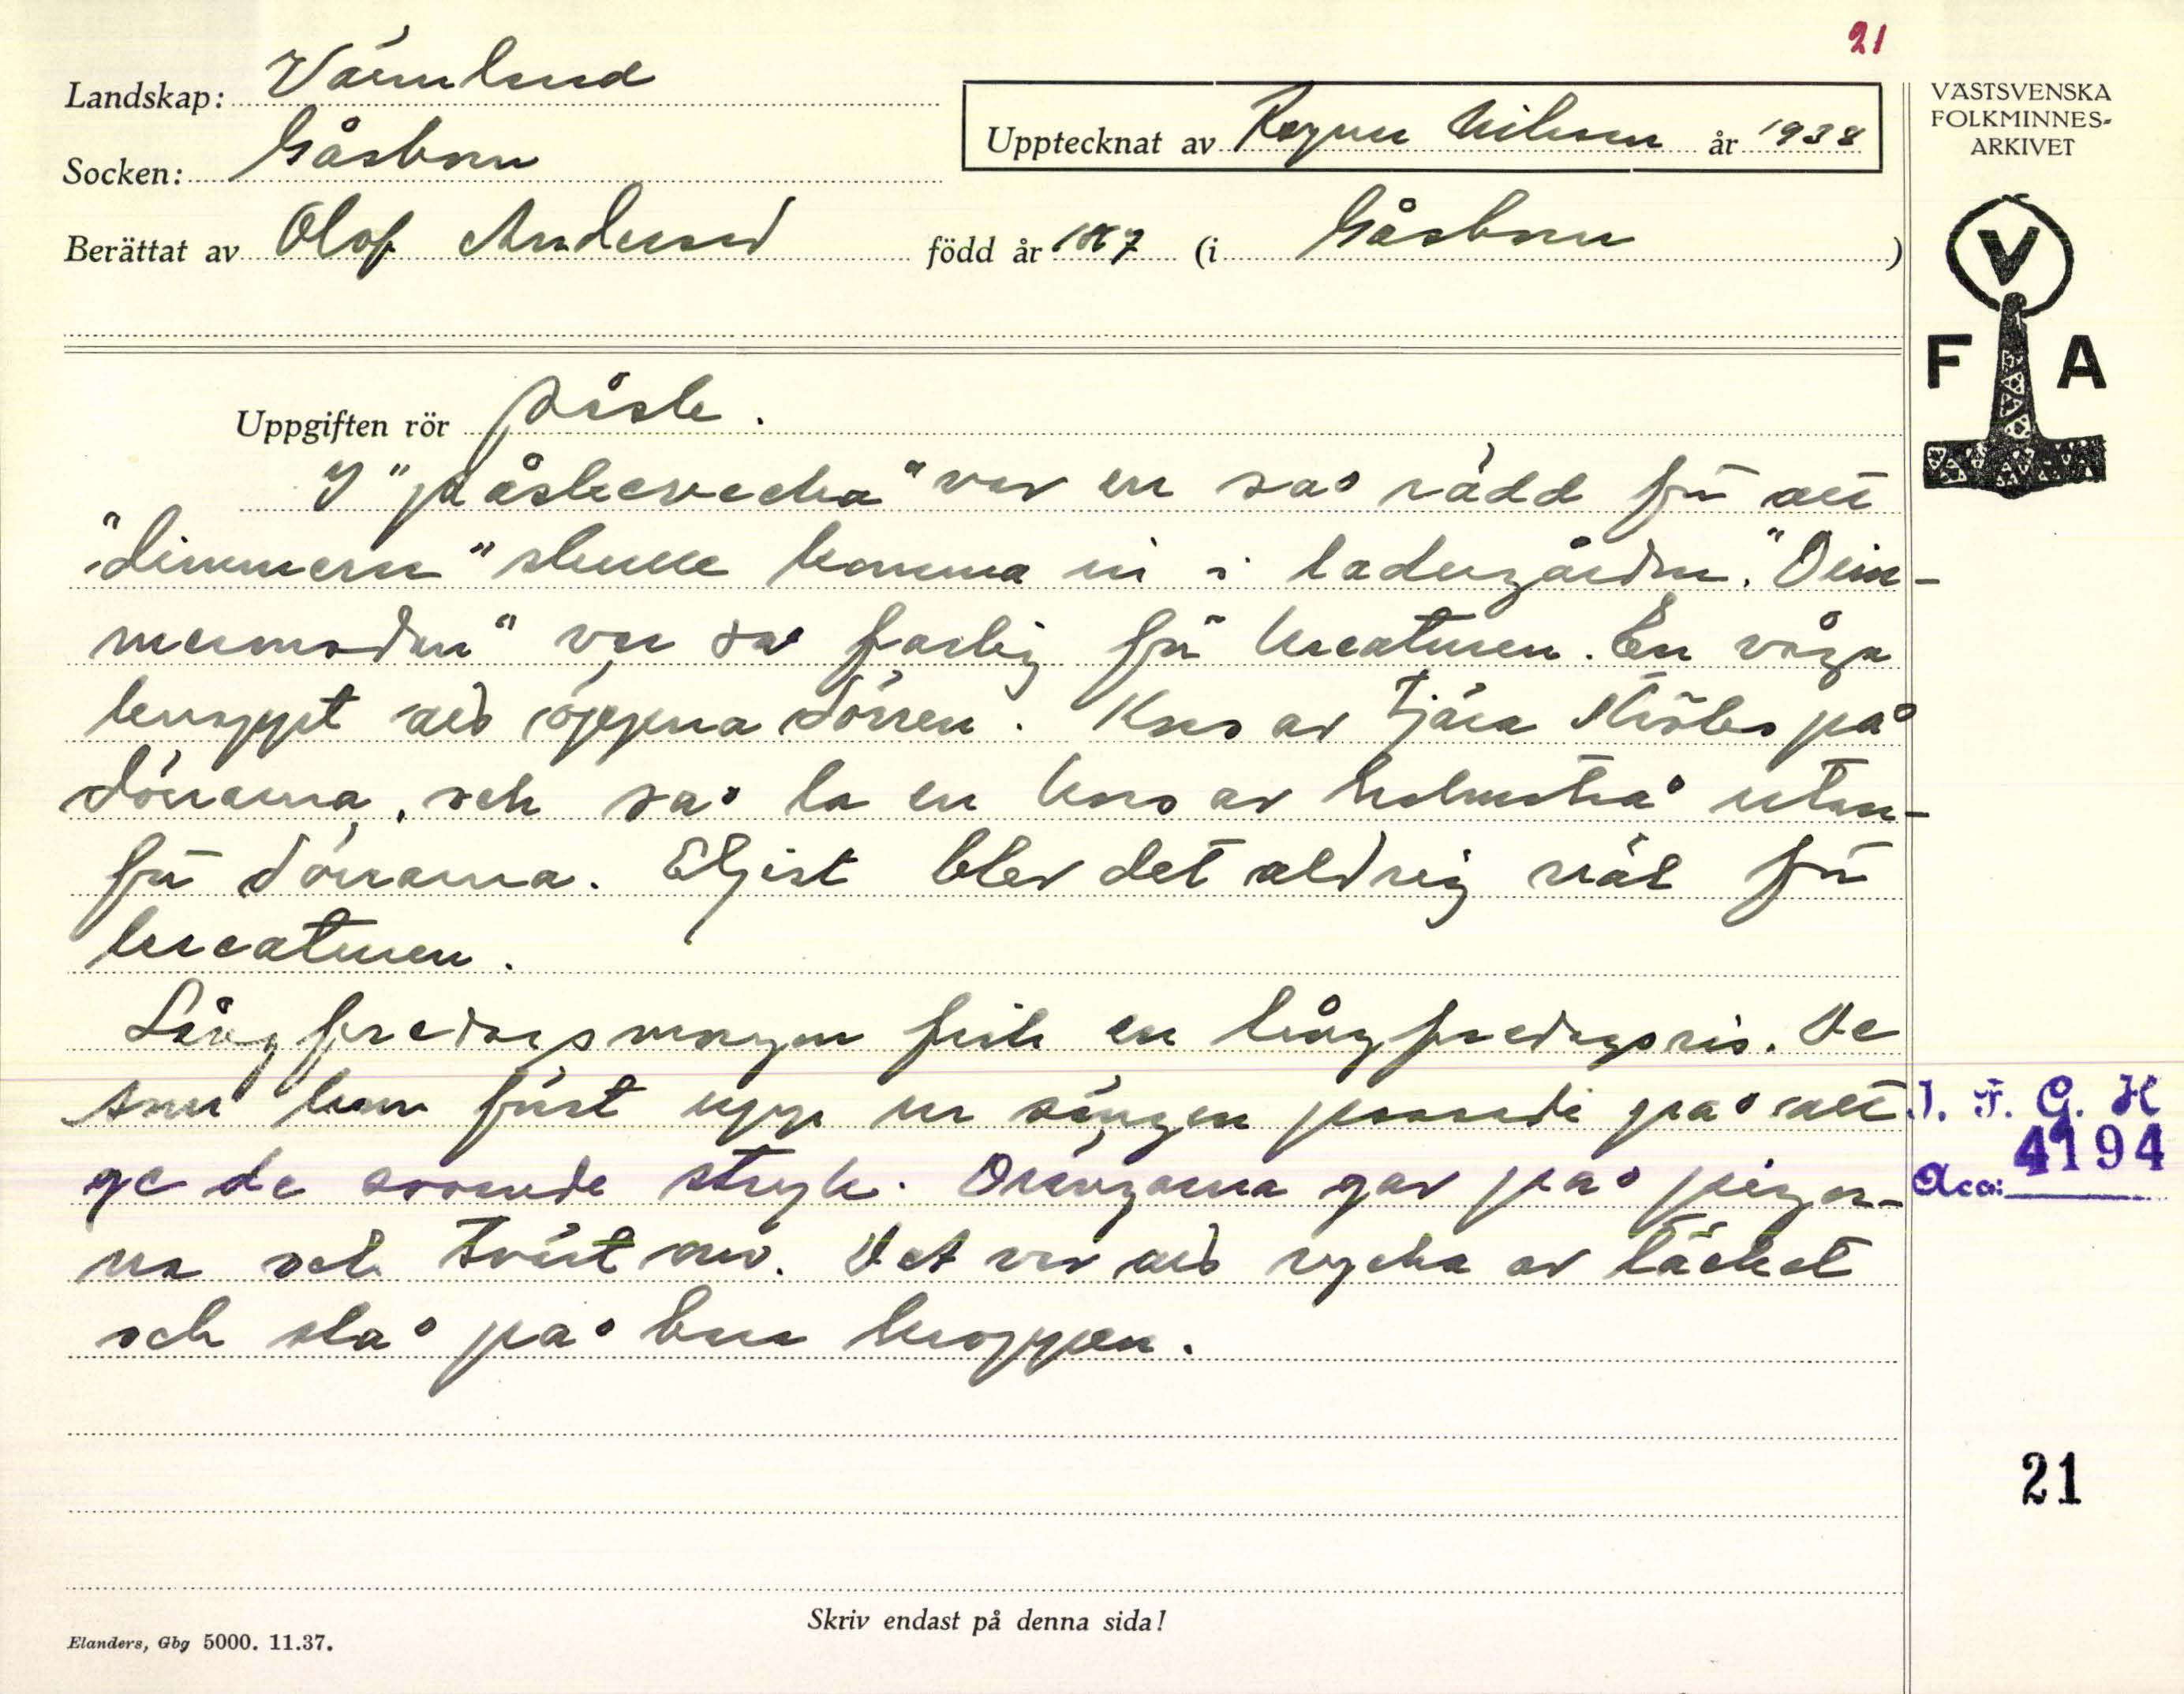 21
Landskap: Värmland
Socken: Gåsborn
Upptecknat av Ragnar Nilsson år 1938
Berättat av Olof Andersson född år (i Gåsborn)
VÄSTSVENSKA
FOLKMINNES-
ARKIVET
V
F A
Uppgiften rör påsk.
I "påskevecka" var en så rädd för att
"dimmern" skulle komma in i ladugården. "Dim-
mermoden" var så farlig för kreaturen. En våga
knappt att öppna dörren. Kors av tjära ströks på
dörrarna, och så la en kors av halmstrå utan-
för dörrarna. Eljest blev det aldrig väl för
kreaturen.
Långfredagsmorgon fick en långfredagsris. De
som kom först upp ur sängen passade på att
ge de sovande stryk. Drängarna gav på pigor-
na och tvärt om. Det var att rycka av täcket
och slå på bara kroppen.
I. F. G. H
4194
Acc:
21
Skriv endast på denna sida!
Elanders, Gbg 5000. 11.37.